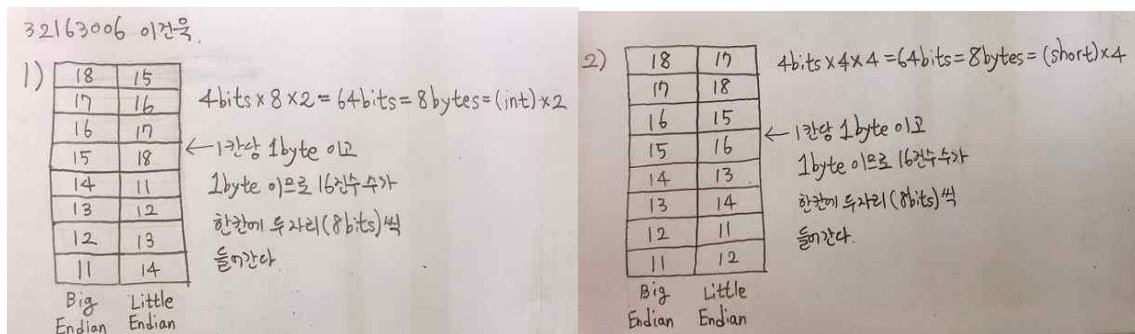 32163006 이건욱.
1)
18 15
17 16
16 17
15 18
14 11
13 12
12 13
11 14
Big Endian Little Endian
4bits x 8 x 2 = 64bits = 8bytes = (int) x 2
← 1칸당 1byte 이고
1byte 이므로 16진수 수가
한칸에 두자리(8bits)씩
들어간다
2)
18 17
17 18
16 15
15 16
14 13
13 14
12 11
11 12
Big Endian Little Endian
4bits x 4 x 4 = 64bits = 8bytes = (short) x 4
← 1칸당 1byte 이고
1byte 이므로 16진수 수가
한칸에 두자리(8bits)씩
들어간다.